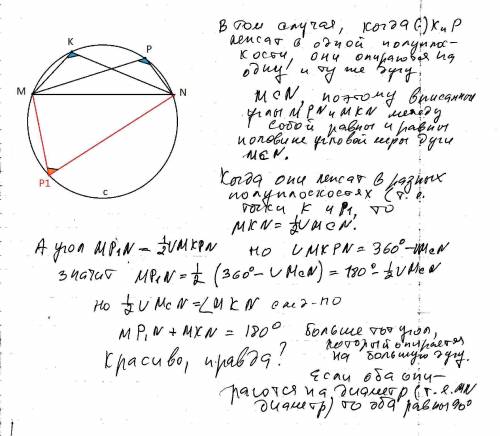 K
P
M
N
P1
c
В том случая, когда (·) K и P
лежат в одной полуплос-
кости, они опираются на
одну и ту же дугу
McN, поэтому вписанные
углы MPN и MKN между
собой равны и равны
половине угловой меры дуги
McN.
Когда они лежат в разных
полуплоскостях (т.е.
точки K и P1, то
MKN = ½ ∪ McN.
А угол MP1N = ½ ∪ MKPN но ∪ MKPN = 360° - ∪McN
значит MP1N = ½ (360° - ∪ McN) = 180° - ½ ∪ McN
но ½ ∪ McN = ∠MKN след-но
MP1N + MKN = 180° больше тот угол,
который опирается
на большую дугу.
Красиво, правда?
Если оба опи-
раются на диаметр (т.е. MN
диаметр) то оба равны 90°